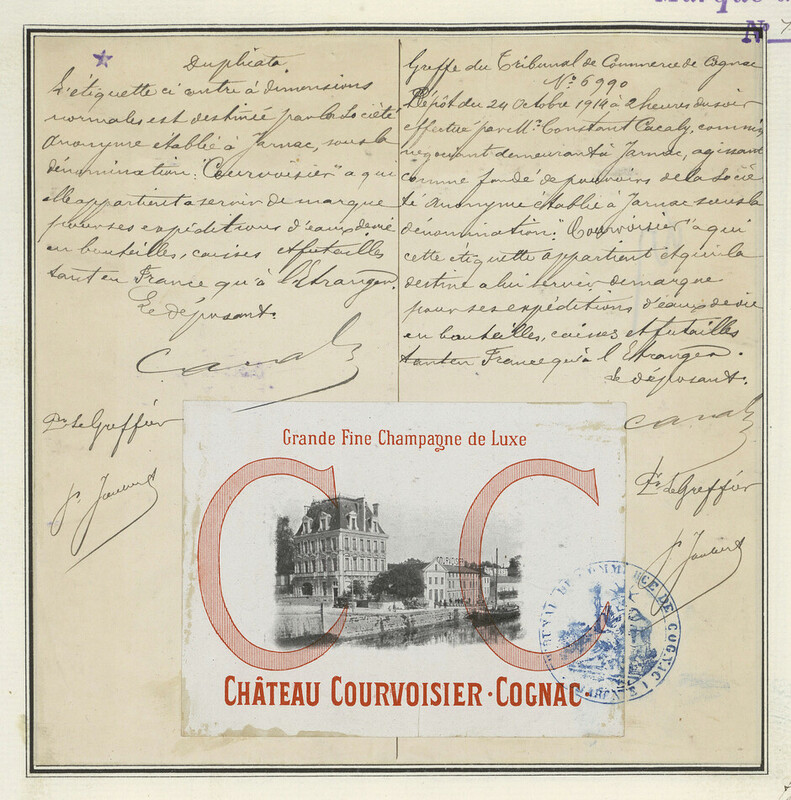 Marque
Nº
Duplicata
L'étiquette ci contre à dimensions
normales est destinée par la Société
Anonyme établie à Jarnac, sous la
dénomination: "Courvoisier" à qui
elle appartient à servir de marque
pour ses expéditions d'eaux de vie
en bouteilles, caisses et futailles
tant en France qu'à l'Etranger.
Le déposant.
Pr Le Greffier
Greffe du Tribunal de Commerce de Cognac
Nº 6990
Dépôt du 24 Octobre 1914 à 2 heures du soir
effectué par Mr. Constant Cacaly, commis
négociant demeurant à Jarnac, agissant
comme fondé de pouvoirs de la Socié
té Anonyme établie à Jarnac sous la
dénomination: "Courvoisier" à qui
cette étiquette appartient et qui la
destine à lui servir de marque
pour ses expéditions d'eaux de vie
en bouteilles, caisses et futailles
tant en France qu'à l'Etranger.
Le déposant.
Pr Le Greffier
Grande Fine Champagne de Luxe
C C
CHÂTEAU COURVOISIER · COGNAC
TRIBUNAL DE COMMERCE DE COGNAC